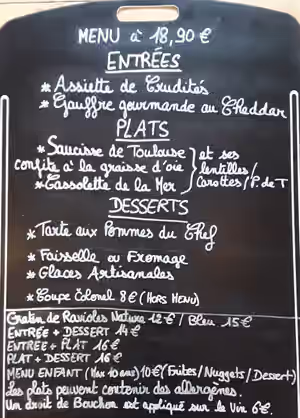 MENU à 18,90 €
ENTRÉES
* Assiette de Crudités
* Gauffre gourmande au Cheddar
PLATS
* Saucisse de Toulouse
confite à la graisse d'oie
* Cassolette de la Mer
et ses
lentilles /
Carottes / P. de T
DESSERTS
* Tarte aux Pommes du Chef
* Faisselle ou Fromage
* Glaces Artisanales
* Coupe Colonel 8€ (HORS MENU)
Gratin de Ravioles Nature 12€ / Bleu 15€
ENTRÉE + DESSERT 14€
ENTRÉE + PLAT 16€
PLAT + DESSERT 16€
MENU ENFANT (Max 10 ans) 10€ (Frites/Nuggets/Dessert)
Les plats peuvent contenir des allergènes.
Un droit de Bouchon est appliqué sur le Vin 6€.